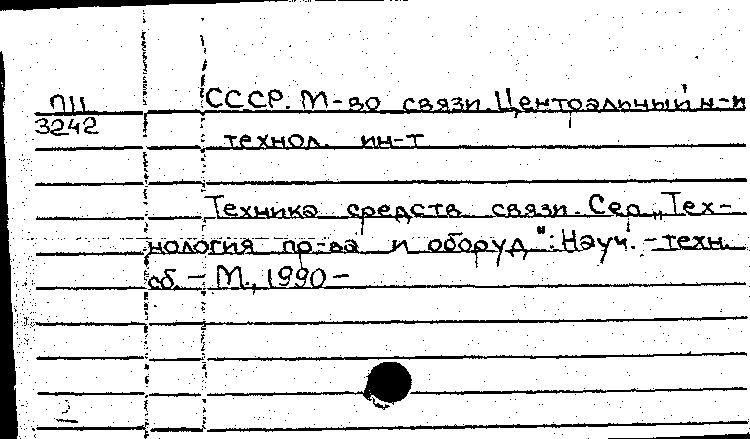 ПII СССР. М-во связи. Центральный н-и
3242 технол. ин-т
Техника средств связи. Сер. „Тех-
нология пр-ва и оборуд": Науч.-техн.
сб. - М., 1990 -
2